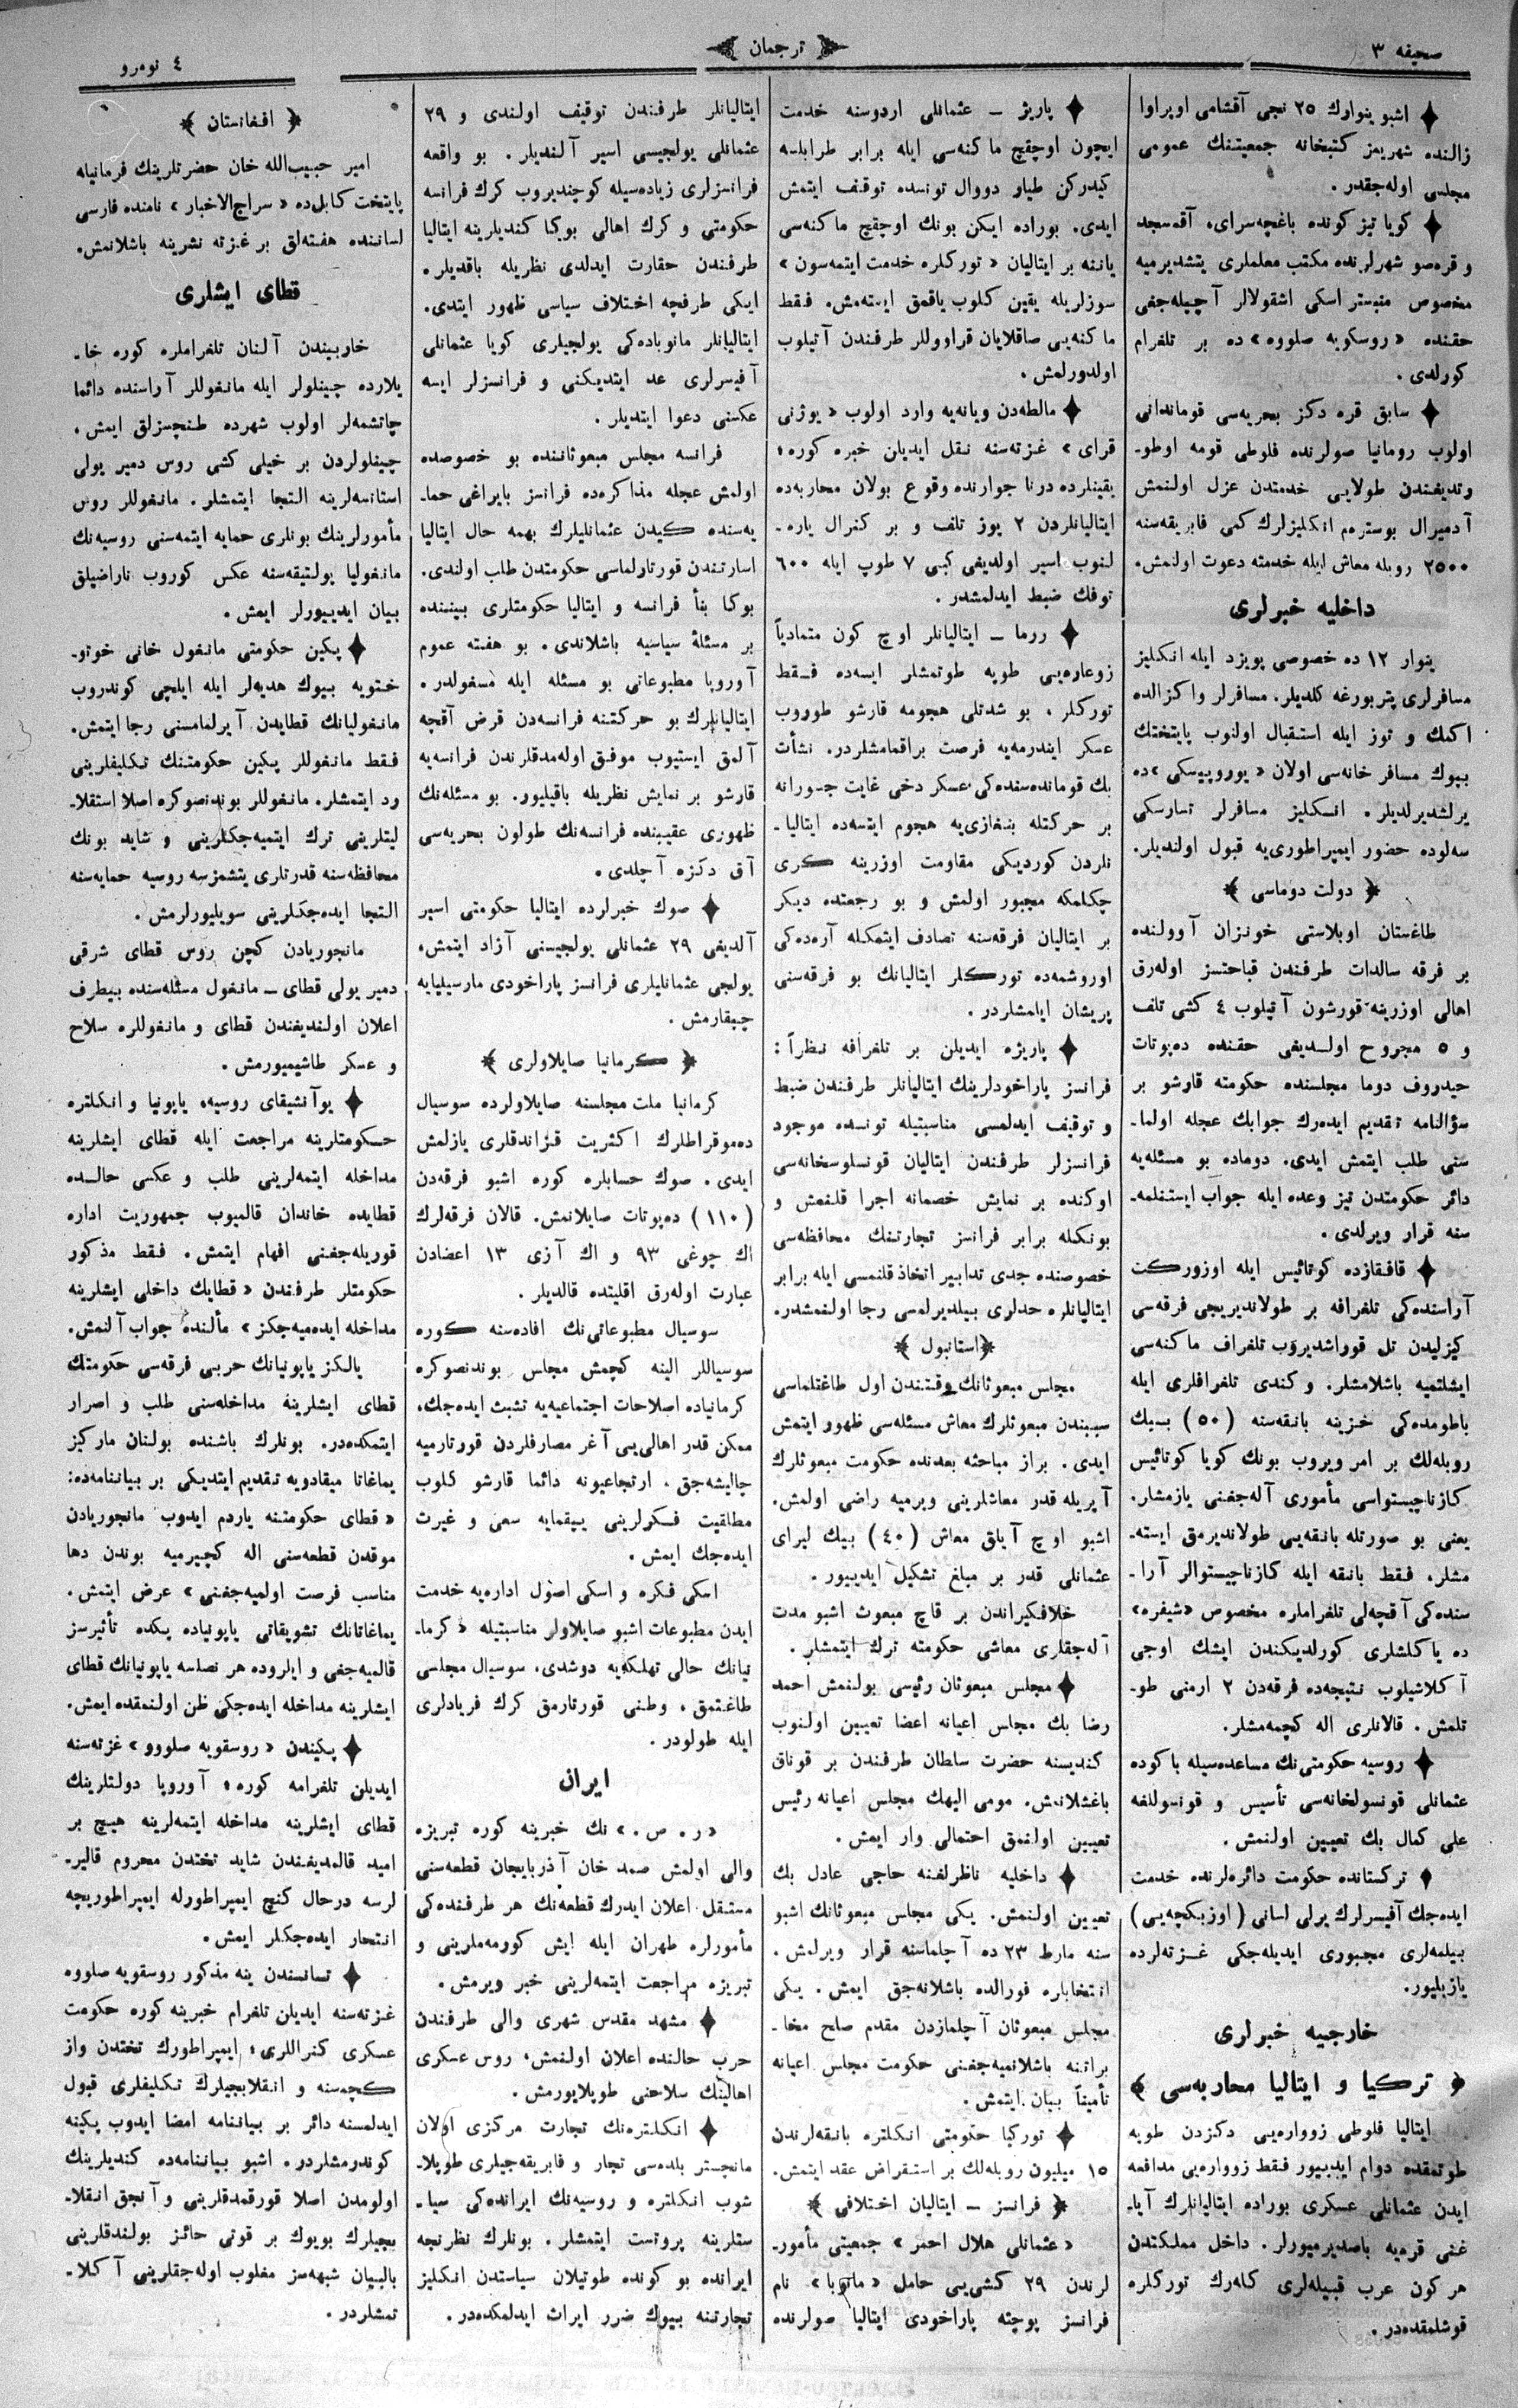 صحیفه ٣
ترجمان
٤ نومرو
اشبو ینوارك ٢٥ نجی آقشامی اوپراوا
زالنده شهریمز كتبخانه جمعیتنك عمومی
مجلسی اوله‌جقدر.
كویا تیز كونده باغچه‌سرای، آقمسجد
و قره‌صو شهرلرنده مكتب معلملری یتشدیرمیه
مخصوص منیستر اسكی اشقولالر آچیله‌جغی
حقنده «روسكویه صلووه» ده بر تلغرام
كورلدی.
سابق قره دكز بحریه‌سی قوماندانی
اولوب رومانیا صولرنده فلوطی قومه اوطو-
رتدیغندن طولایی خدمتدن عزل اولنمش
آدمیرال بوسترەم انكلیزلرك كمی فابریقه‌سنه
٢٥٠٠ روبله معاش ایله خدمته دعوت اولنمش.
داخلیه خبرلری
ینوار ١٢ ده خصوصی پویزد ایله انكلیز
مسافرلری پتربورغه كلدیلر. مسافرلر واكزالده
اكمك و توز ایله استقبال اولنوب پایتختك
بیوك مسافر خانه‌سی اولان «یوروپیسكی» ده
یرلشدیرلدیلر. انكلیز مسافرلر تسارسكی
سه‌لوده حضور ایمپراطوری‌یه قبول اولندیلر.
﴿ دولت دوماسی ﴾
طاغستان اوبلاستی خونزان آوولنده
بر فرقه سالدات طرفندن قباحتسز اوله‌رق
اهالی اوزرینه قورشون آتیلوب ٤ كشی تلف
و ٥ مجروح اولدیغی حقنده ده‌پوتات
حیدروف دوما مجلسنده حكومته قارشو بر
سؤالنامه تقدیم ایده‌رك جوابك عجله اولما-
سنی طلب ایتمش ایدی. دوماده بو مسئله‌یه
دائر حكومتدن تیز وعده ایله جواب ایستنلمه-
سنه قرار ویرلدی.
قافقازده كوتائیس ایله اوزوركت
آراسنده‌كی تلغرافه بر طولاندیریجی فرقه‌سی
كیزلیدن تل قوواشدیروب تلغراف ماكنه‌سی
ایشلتمیه باشلامشلر. و كندی تلغرافلری ایله
باطومده‌كی خزینه بانقه‌سنه (٥٠) بیك
روبله‌لك بر امر ویروب بونك كویا كوتائیس
كازناچیستواسی مأموری آله‌جغنی یازمشلر.
یعنی بو صورتله بانقه‌یی طولاندیرمق ایسته-
مشلر. فقط بانقه ایله كازناچیستوالر آرا-
سنده‌كی آقچه‌لی تلغراملره مخصوص «شیفره»
ده یاكلشلری كورلدیكندن ایشك اوجی
آكلاشیلوب نتیجه‌ده فرقه‌دن ٢ ارمنی طو-
تلمش. قالانلری اله كچمه‌مشلر.
روسیه حكومتی‌نك مساعده‌سیله باكوده
عثمانلی قونسولخانه‌سی تأسیس و قونسوللغه
علی كمال بك تعیین اولنمش.
تركستانده حكومت دائره‌لرنده خدمت
ایده‌جك آفیسرلرك یرلی لسانی (اوزبكچه‌یی)
بیلمه‌لری مجبوری ایدیله‌جكی غزته‌لرده
یازیلیور.
خارجیه خبرلری
﴿ تركیا و ایتالیا محاربه‌سی ﴾
ایتالیا فلوطی زوواره‌یی دكزدن طوپه
طوتمقده دوام ایدییور فقط زوواره‌یی مدافعه
ایدن عثمانلی عسكری بوراده ایتالیانلرك آیا-
غنی قره‌یه باصدیرمیورلر. داخل مملكتدن
هر كون عرب قبیله‌لری كله‌رك توركلره
قوشلمقده‌در.
پاریژ — عثمانلی اردوسنه خدمت
ایچون اوچقچ ماكنه‌سی ایله برابر طرابلسه
كیدركن طیار دووال تونسده توقیف ایتمش
ایدی. بوراده ایكن بونك اوچقچ ماكنه‌سی
یاننه بر ایتالیان «توركلره خدمت ایتمه‌سون»
سوزلریله یقین كلوب یاقمق ایسته‌مش. فقط
ماكنه‌یی صاقلایان قراووللر طرفندن آتیلوب
اولدورلمش.
مالطه‌دن ویانه‌یه وارد اولوب «یوژنی
قرای» غزته‌سنه نقل ایدیلن خبره كوره،
یقینلرده درنا جوارنده وقوع بولان محاربه‌ده
ایتالیانلردن ٢ یوز تلف و بر كنرال یاره-
لنوب اسیر اولدیغی كبی ٧ طوپ ایله ٦٠٠
توفك ضبط ایدلمشدر.
ررما — ایتالیانلر اوچ كون متمادیاً
زوعاره‌یی طوپه طوتمشلر ایسه‌ده فقط
توركلر، بو شدتلی هجومه قارشو طوروب
عسكر ایندرمه‌یه فرصت براقمامشلردر. نشأت
بك قومانده‌سنده‌كی عسكر دخی غایت جسورانه
بر حركتله بنغازی‌یه هجوم ایتسه‌ده ایتالیا-
نلردن كوردیكی مقاومت اوزرینه كری
چكلمكه مجبور اولمش و بو رجعتده دیكر
بر ایتالیان فرقه‌سنه تصادف ایتمكله آره‌ده‌كی
اوروشمه‌ده توركلر ایتالیانك بو فرقه‌سنی
پریشان ایلمشلردر.
پاریژه ایدیلن بر تلغرافه نظراً:
فرانسز پاراخودلرینك ایتالیانلر طرفندن ضبط
و توقیف ایدلمسی مناسبتیله تونسده موجود
فرانسزلر طرفندن ایتالیان قونسلوسخانه‌سی
اوكنده بر نمایش خصمانه اجرا قلنمش و
بونكله برابر فرانسز تجارتنك محافظه‌سی
خصوصنده جدی تدابیر اتخاذ قلنمسی ایله برابر
ایتالیانلره حدلری بیلدیرلمسی رجا اولنمشدر.
﴿استانبول ﴾
مجلس مبعوثانك وقتندن اول طاغتلماسی
سببندن مبعوثلرك معاش مسئله‌سی ظهور ایتمش
ایدی. براز مباحثه بعدنده حكومت مبعوثلرك
آپریله قدر معاشلرینی ویرمیه راضی اولمش.
اشبو اوچ آیلق معاش (٤٠) بیك لیرای
عثمانلی قدر بر مبلغ تشكیل ایدییور.
خلافكیراندن بر قاچ مبعوث اشبو مدت
آله‌جقلری معاشی حكومته ترك ایتمشلر.
مجلس مبعوثان رئیسی بولنمش احمد
رضا بك مجلس اعیانه اعضا تعیین اولنوب
كندیسنه حضرت سلطان طرفندن بر قوناق
باغشلانمش. مومی الیهك مجلس اعیانه رئیس
تعیین اولنمق احتمالی وار ایمش.
داخلیه ناظرلغنه حاجی عادل بك
تعیین اولنمش. یكی مجلس مبعوثانك اشبو
سنه مارط ٢٣ ده آچلماسنه قرار ویرلمش.
انتخاباره فورالده باشلانه‌جق ایمش. یكی
مجلس مبعوثان آچلمازدن مقدم صلح مخا-
براتنه باشلانمیه‌جغنی حكومت مجلس اعیانه
تأمیناً بیان ایتمش.
توركیا حكومتی انكلتره بانقه‌لرندن
١٥ میلیون روبله‌لك بر استقراض عقد ایتمش.
﴿ فرانسز — ایتالیان اختلافی ﴾
«عثمانلی هلال احمر» جمعیتی مأمور-
لرندن ٢٩ كشی‌یی حامل «مانوبا» نام
فرانسز پوچته پاراخودی ایتالیا صولرنده
ایتالیانلر طرفندن توقیف اولندی و ٢٩
عثمانلی یولجیسی اسیر آلندیلر. بو واقعه
فرانسزلری زیاده‌سیله كوجندیروب كرك فرانسه
حكومتی و كرك اهالی بوكا كندیلرینه ایتالیا
طرفندن حقارت ایدلدی نظریله باقدیلر.
ایكی طرفچه اختلاف سیاسی ظهور ایتدی.
ایتالیانلر مانوباده‌كی یولجیلری كویا عثمانلی
آفیسرلری عد ایتدیكنی و فرانسزلر ایسه
عكسنی دعوا ایتدیلر.
فرانسه مجلس مبعوثاننده بو خصوصده
اولمش عجله مذاكره‌ده فرانسز بایراغی حما-
یه‌سنده كیدن عثمانلیلرك بهمه حال ایتالیا
اسارتندن قورتارلماسی حكومتدن طلب اولندی.
بوكا بنأ فرانسه و ایتالیا حكومتلری بیننده
بر مسئلۀ سیاسیه باشلاندی. بو هفته عموم
آوروپا مطبوعاتی بو مسئله ایله مشغولدر.
ایتالیانلرك بو حركتنه فرانسه‌دن قرض آقچه
آلمق ایستیوب موفق اوله‌مدقلرندن فرانسه‌یه
قارشو بر نمایش نظریله باقیلیور. بو مسئله‌نك
ظهوری عقیبنده فرانسه‌نك طولون بحریه‌سی
آق دكزه آچلدی.
صوك خبرلرده ایتالیا حكومتی اسیر
آلدیغی ٢٩ عثمانلی یولجیسنی آزاد ایتمش.
یولجی عثمانلیلری فرانسز پاراخودی مارسیلیایه
چیقارمش.
﴿ كرمانیا صایلاولری ﴾
كرمانیا ملت مجلسنه صایلاولرده سوسیال
ده‌موقراطلرك اكثریت قزاندقلری یازلمش
ایدی. صوك حسابلره كوره اشبو فرقه‌دن
(١١٠) ده‌پوتات صایلانمش. قالان فرقه‌لرك
اك چوغی ٩٣ و اك آزی ١٣ اعضادن
عبارت اوله‌رق اقلیتده قالدیلر.
سوسیال مطبوعاتی‌نك افاده‌سنه كوره
سوسیاللر الینه كچمش مجلس بوندنصوكره
كرمانیاده اصلاحات اجتماعیه‌یه تشبث ایده‌جك،
ممكن قدر اهالی‌یی آغر مصارفلردن قورتارمیه
چالیشه‌جق، ارتجاعیونه دائما قارشو كلوب
مطلقیت فكرلرینی ییقمایه سعی و غیرت
ایده‌جك ایمش.
اسكی فكره و اسكی اصول اداره‌یه خدمت
ایدن مطبوعات اشبو صایلاولر مناسبتیله «كرما-
نیانك حالی تهلكه‌یه دوشدی، سوسیال مجلسی
طاغتمق، وطنی قورتارمق كرك فریادلری
ایله طولودر.
ایران
«ر. ص.» نك خبرینه كوره تبریزه
والی اولمش صمد خان آذربایجان قطعه‌سنی
مستقل اعلان ایدرك قطعه‌نك هر طرفنده‌كی
مأمورلره طهران ایله ایش كورمه‌ملرینی و
تبریزه مراجعت ایتمه‌لرینی خبر ویرمش.
مشهد مقدس شهری والی طرفندن
حرب حالنده اعلان اولنمش، روس عسكری
اهالینك سلاحنی طوپلایورمش.
انكلتره‌نك تجارت مركزی اولان
مانچستر بلده‌سی تجار و فابریقه‌جیلری طوپلا-
شوب انكلتره و روسیه‌نك ایرانده‌كی سیا-
ستلرینه پروتست ایتمشلر. بونلرك نظرنجه
ایرانده بو كونده طوتیلان سیاستدن انكلیز
تجارتنه بیوك ضرر ایراث ایدلمكده‌در.
﴿ افغانستان ﴾
امیر حبیب‌الله خان حضرتلرینك فرمانیله
پایتخت كابل‌ده «سراج‌الاخبار» نامنده فارسی
لسانده هفته‌لق بر غزته نشرینه باشلانمش.
قطای ایشلری
خاربیندن آلنان تلغراملره كوره خا-
یلارده چینلولر ایله مانغوللر آراسنده دائما
چاتشمه‌لر اولوب شهرده طنچسزلق ایمش.
چینلولردن بر خیلی كشی روس دمیر یولی
استانسه‌لرینه التجا ایتمشلر. مانغوللر روس
مأمورلرینك بونلری حمایه ایتمه‌سنی روسیه‌نك
مانغولیا پولتیقه‌سنه عكس كوروب ناراضیلق
بیان ایدییورلر ایمش.
پكین حكومتی مانغول خانی خوتو-
ختویه بیوك هدیه‌لر ایله ایلچی كوندروب
مانغولیانك قطایدن آیرلمامسنی رجا ایتمش.
فقط مانغوللر پكین حكومتنك تكلیفلرینی
رد ایتمشلر. مانغوللر بوندنصوكره اصلا استقلا-
لیتلرینی ترك ایتمیه‌جكلرینی و شاید بونك
محافظه‌سنه قدرتلری یتشمزسه روسیه حمایه‌سنه
التجا ایده‌جكلرینی سویلیورلرمش.
مانجوریادن كچن روس قطای شرقی
دمیر یولی قطای — مانغول مسئله‌سنده بیطرف
اعلان اولندیغندن قطای و مانغوللره سلاح
و عسكر طاشیمیورمش.
یوآنشیقای روسیه، یاپونیا و انكلتره
حكومتلرینه مراجعت ایله قطای ایشلرینه
مداخله ایتمه‌لرینی طلب و عكسی حالده
قطایده خاندان قالمیوب جمهوریت اداره
قوریله‌جغنی افهام ایتمش. فقط مذكور
حكومتلر طرفندن «قطایك داخلی ایشلرینه
مداخله ایده‌میه‌جكز» مألنده جواب آلنمش.
یالكز یاپونیانك حربی فرقه‌سی حكومتك
قطای ایشلرینه مداخله‌سنی طلب و اصرار
ایتمكده‌در. بونلرك باشنده بولنان ماركیز
یماغاتا میقادویه تقدیم ایتدیكی بر بیاننامه‌ده:
«قطای حكومتنه یاردم ایدوب مانجوریادن
موقدن قطعه‌سنی اله كچیرمیه بوندن دها
مناسب فرصت اولمیه‌جغنی» عرض ایتمش.
یماغاتانك تشویقاتی یاپونیاده پكده تأثیرسز
قالمیه‌جغی و ایلروده هر نصلسه یاپونیانك قطای
ایشلرینه مداخله ایده‌جكی ظن اولنمقده ایمش.
پكیندن «روسقویه صلووو» غزته‌سنه
ایدیلن تلغرامه كوره، آوروپا دولتلرینك
قطای ایشلرینه مداخله ایتمه‌لرینه هیچ بر
امید قالمدیغندن شاید تختدن محروم قالیر-
لرسه درحال كنج ایمپراطورله ایمپراطوریچه
انتحار ایده‌جكلر ایمش.
تسانسندن ینه مذكور روسقویه صلووه
غزته‌سنه ایدیلن تلغرام خبرینه كوره حكومت
عسكری كنراللری، ایمپراطورك تختدن واز
كچمه‌سنه و انقلابجیلرك تكلیفلری قبول
ایدلمسنه دائر بر بیاننامه امضا ایدوب پكینه
كوندرمشلردر. اشبو بیاننامه‌ده كندیلرینك
اولومدن اصلا قورقمدقلرینی و آنجق انقلا-
بجیلرك بویوك بر قوتی حائز بولندقلرینی
بالبیان شبهه‌سز مغلوب اوله‌جقلرینی آكلا-
تمشلردر.